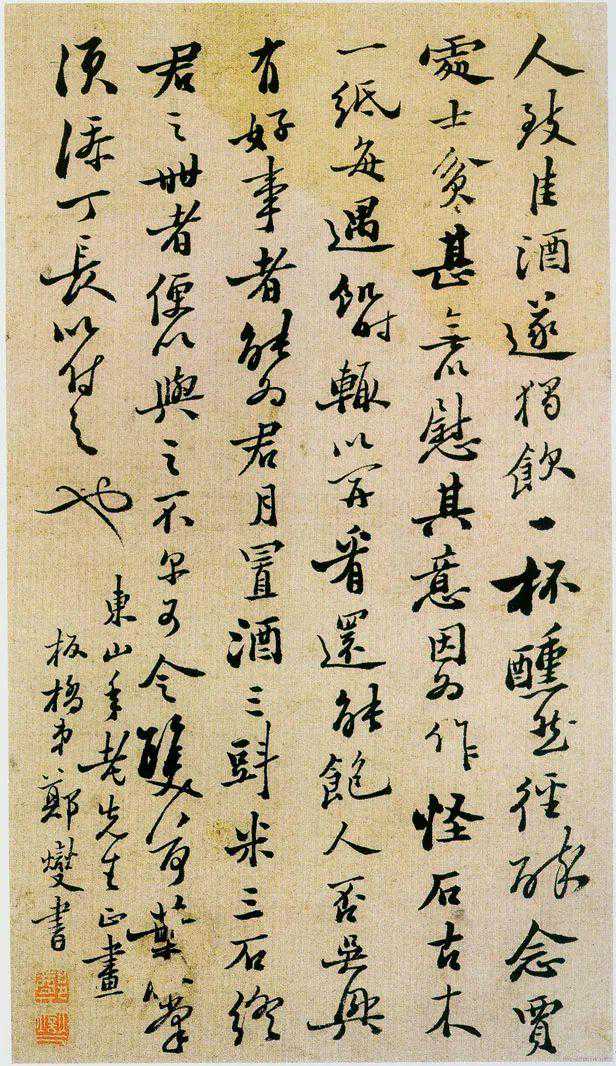 人致佳酒遂獨飲一杯醺然徑醉念賈
處士貧甚無以慰其意因為作怪石古木
一紙每遇飢時輒以開看還能飽人否吳興
有好事者能為君月置酒三㪷米三石終
君之世者便以與之不爾可令雙荷葉
須添丁長以付之也
東山年老先生正畫
板橋弟鄭燮書